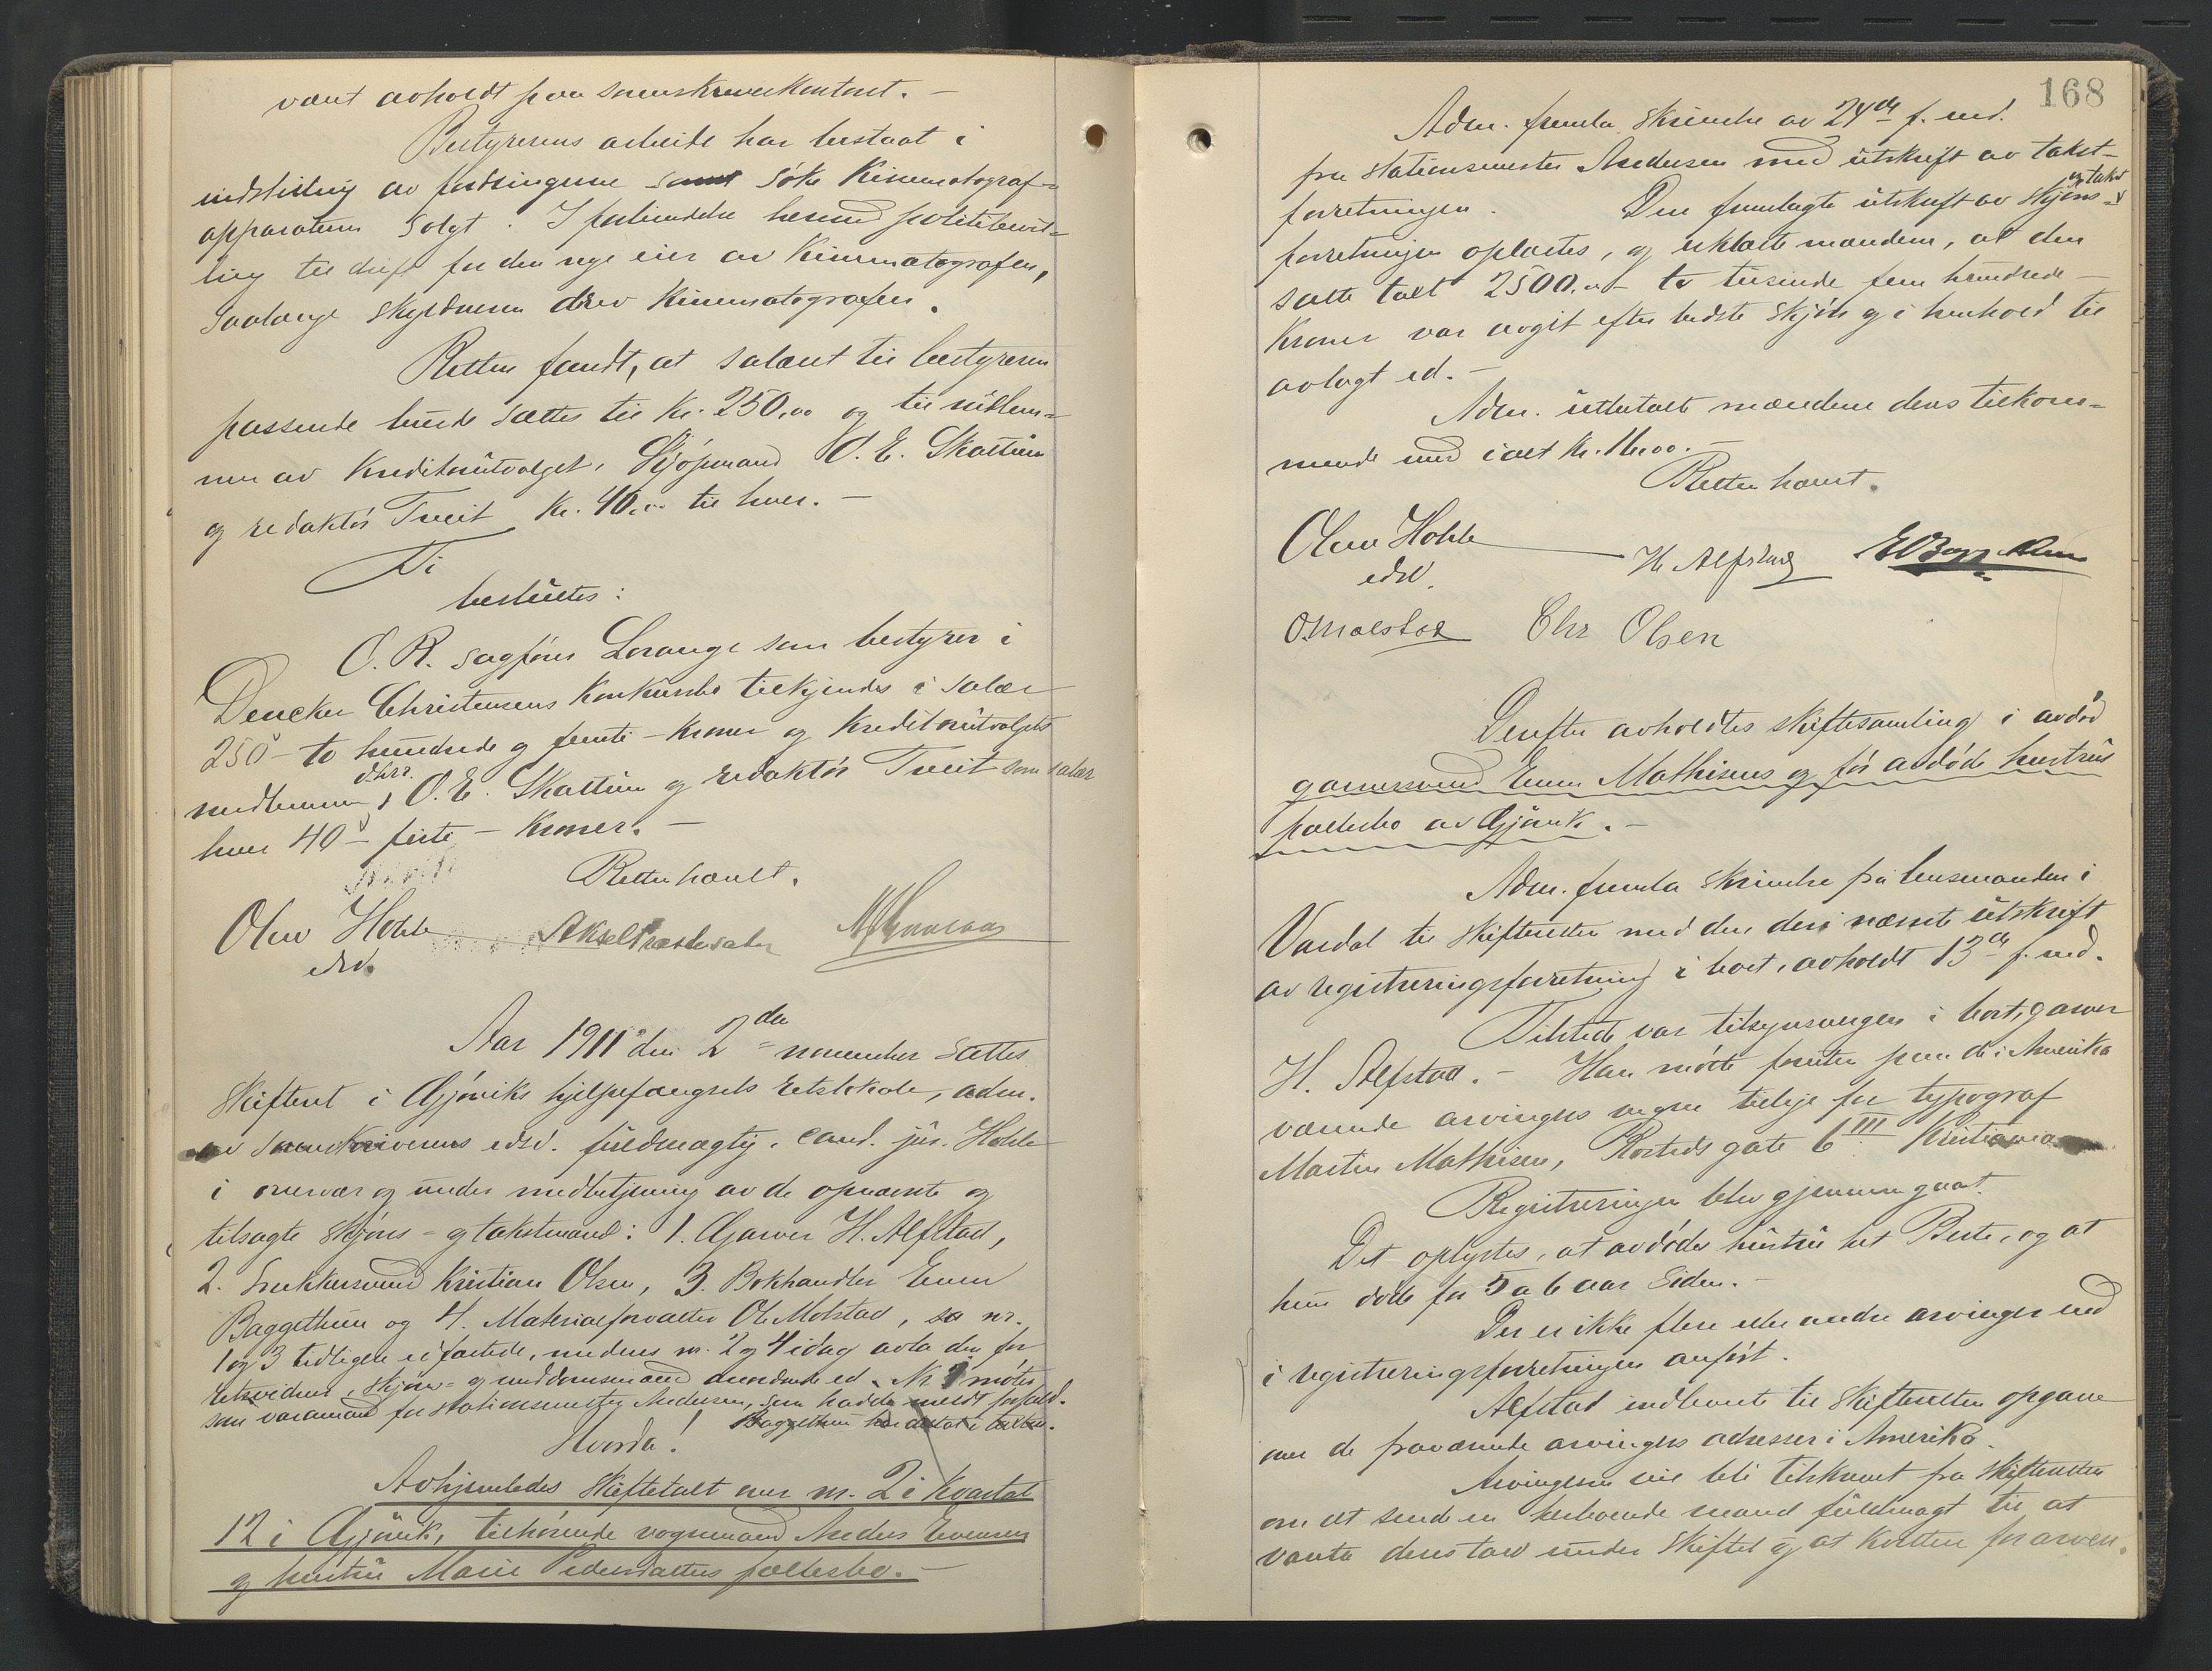 været avholdt paa sorenskriverkontoret. –
Bestyrerens arbeide har bestaat i
indstilling av fordringerne samt søke Kinematograf-
apparaterne solgt. I forbindelse hermed politibevil-
ling til drift for den nye eier av Kinematografen,
saalænge skyldneren drev Kinematografen.
Retten fandt, at salæret til bestyreren
passende burde sættes til Kr. 250,00 og til medlem-
mer av Kreditorutvalget, Kjøpmand O. E. Skattum
og redaktør Tveit Kr. 40,00 til hver. –
Ti
besluttes:
O. R. sagfører Lorange som bestyrer i
Dencker Christensens Konkursbo tilkjendes i salær
250 – to hundrede og femti – Kroner og Kreditorutvalgets
medlemmer, d'hrr. O. E. Skattum og redaktør Tveit som salær
hver 40 – firti – Kroner. –
Retten hævet.
Olav Hohle
edsv.
Aksel Præstesater
Aar 1911 den 2den november sattes
Skifteret i Gjøviks hjelpefængsels retslokale, adm.
av sorenskriverens edsv. fuldmægtig, cand. jur. Hohle
i overvær og under medbetjening av de opnævnte og
tilsagte skjøns- og takstmænd: 1. Garver H. Alfstad,
2. Snekkersvend Kristian Olsen, 3. Bokhandler Even
Baggethun og 4. Materialforvalter Ole Molstad, so nr.
1 og 3 tidligere edfæstede, medens nr. 2 og 4 idag avla den for
retsvidner, skjøns- og meddomsmænd anordnede ed. Nr. 3 møtte
som varamand for stationsmester Andersen, som hadde meldt forfald.
Baggethun har deltat i taksten.
Hvorda!
Avhjemledes skiftetakt over nr. 2 i Kvartal
12 i Gjøvik, tilhørende vognmand Anders Evensens
og hustru Marie Pedersdatters fællesbo. –
168
Adm. fremla skrivelse av 24de f. md.
fra stationsmester Andersen med utskrift av takst-
forretningen. Den fremlagte utskrift av skjøns- og takst
forretningen oplæstes, og erklærte mændene, at den
satte takst 2500.00 – to tusinde fem hundrede –
Kroner var avgit efter bedste skjøn og i henhold til
avlagt ed. –
Adm. utbetalte mændene deres tilkom-
mende med ialt Kr. 16.00. –
Retten hævet.
Olav Hohle
edsv.
H. Alfstad
E Baggethun
O. Molstad Chr Olsen
Derefter avholdtes skiftesamling i avdød
garversvend Even Mathisens og før avdøde hustrus
fællesbo av Gjøvik. –
Adm. fremla skrivelse fra lensmanden i
Vardal til skifteretten med den deri nævnte utskrift
av registreringsforretning i boet, avholdt 13de f. md.
Tilstede var tilsynsvergen i boet, garver
H. Alfstad. – Han møtte foruten paa de i Amerika
værende arvingers vegne tillike for typograf
Martin Mathisen, Rosteds gate 6 III Kristiania
Registreringen blev gjennemgaat.
Det oplystes, at avdødes hustru het Berte, og at
hun døde for 5 a 6 aar siden. –
Der er ikke flere eller andre arvinger end
i registreringsforretningen anført.
Alfstad indleverte til skifteretten opgave
over de fraværende arvingers adresser i Amerika.
Arvingerne vil bli tilskrevet fra skifteretten
om at sende en herboende mand fuldmagt til at
vareta deres tarv under skiftet og at kvittere for arven.